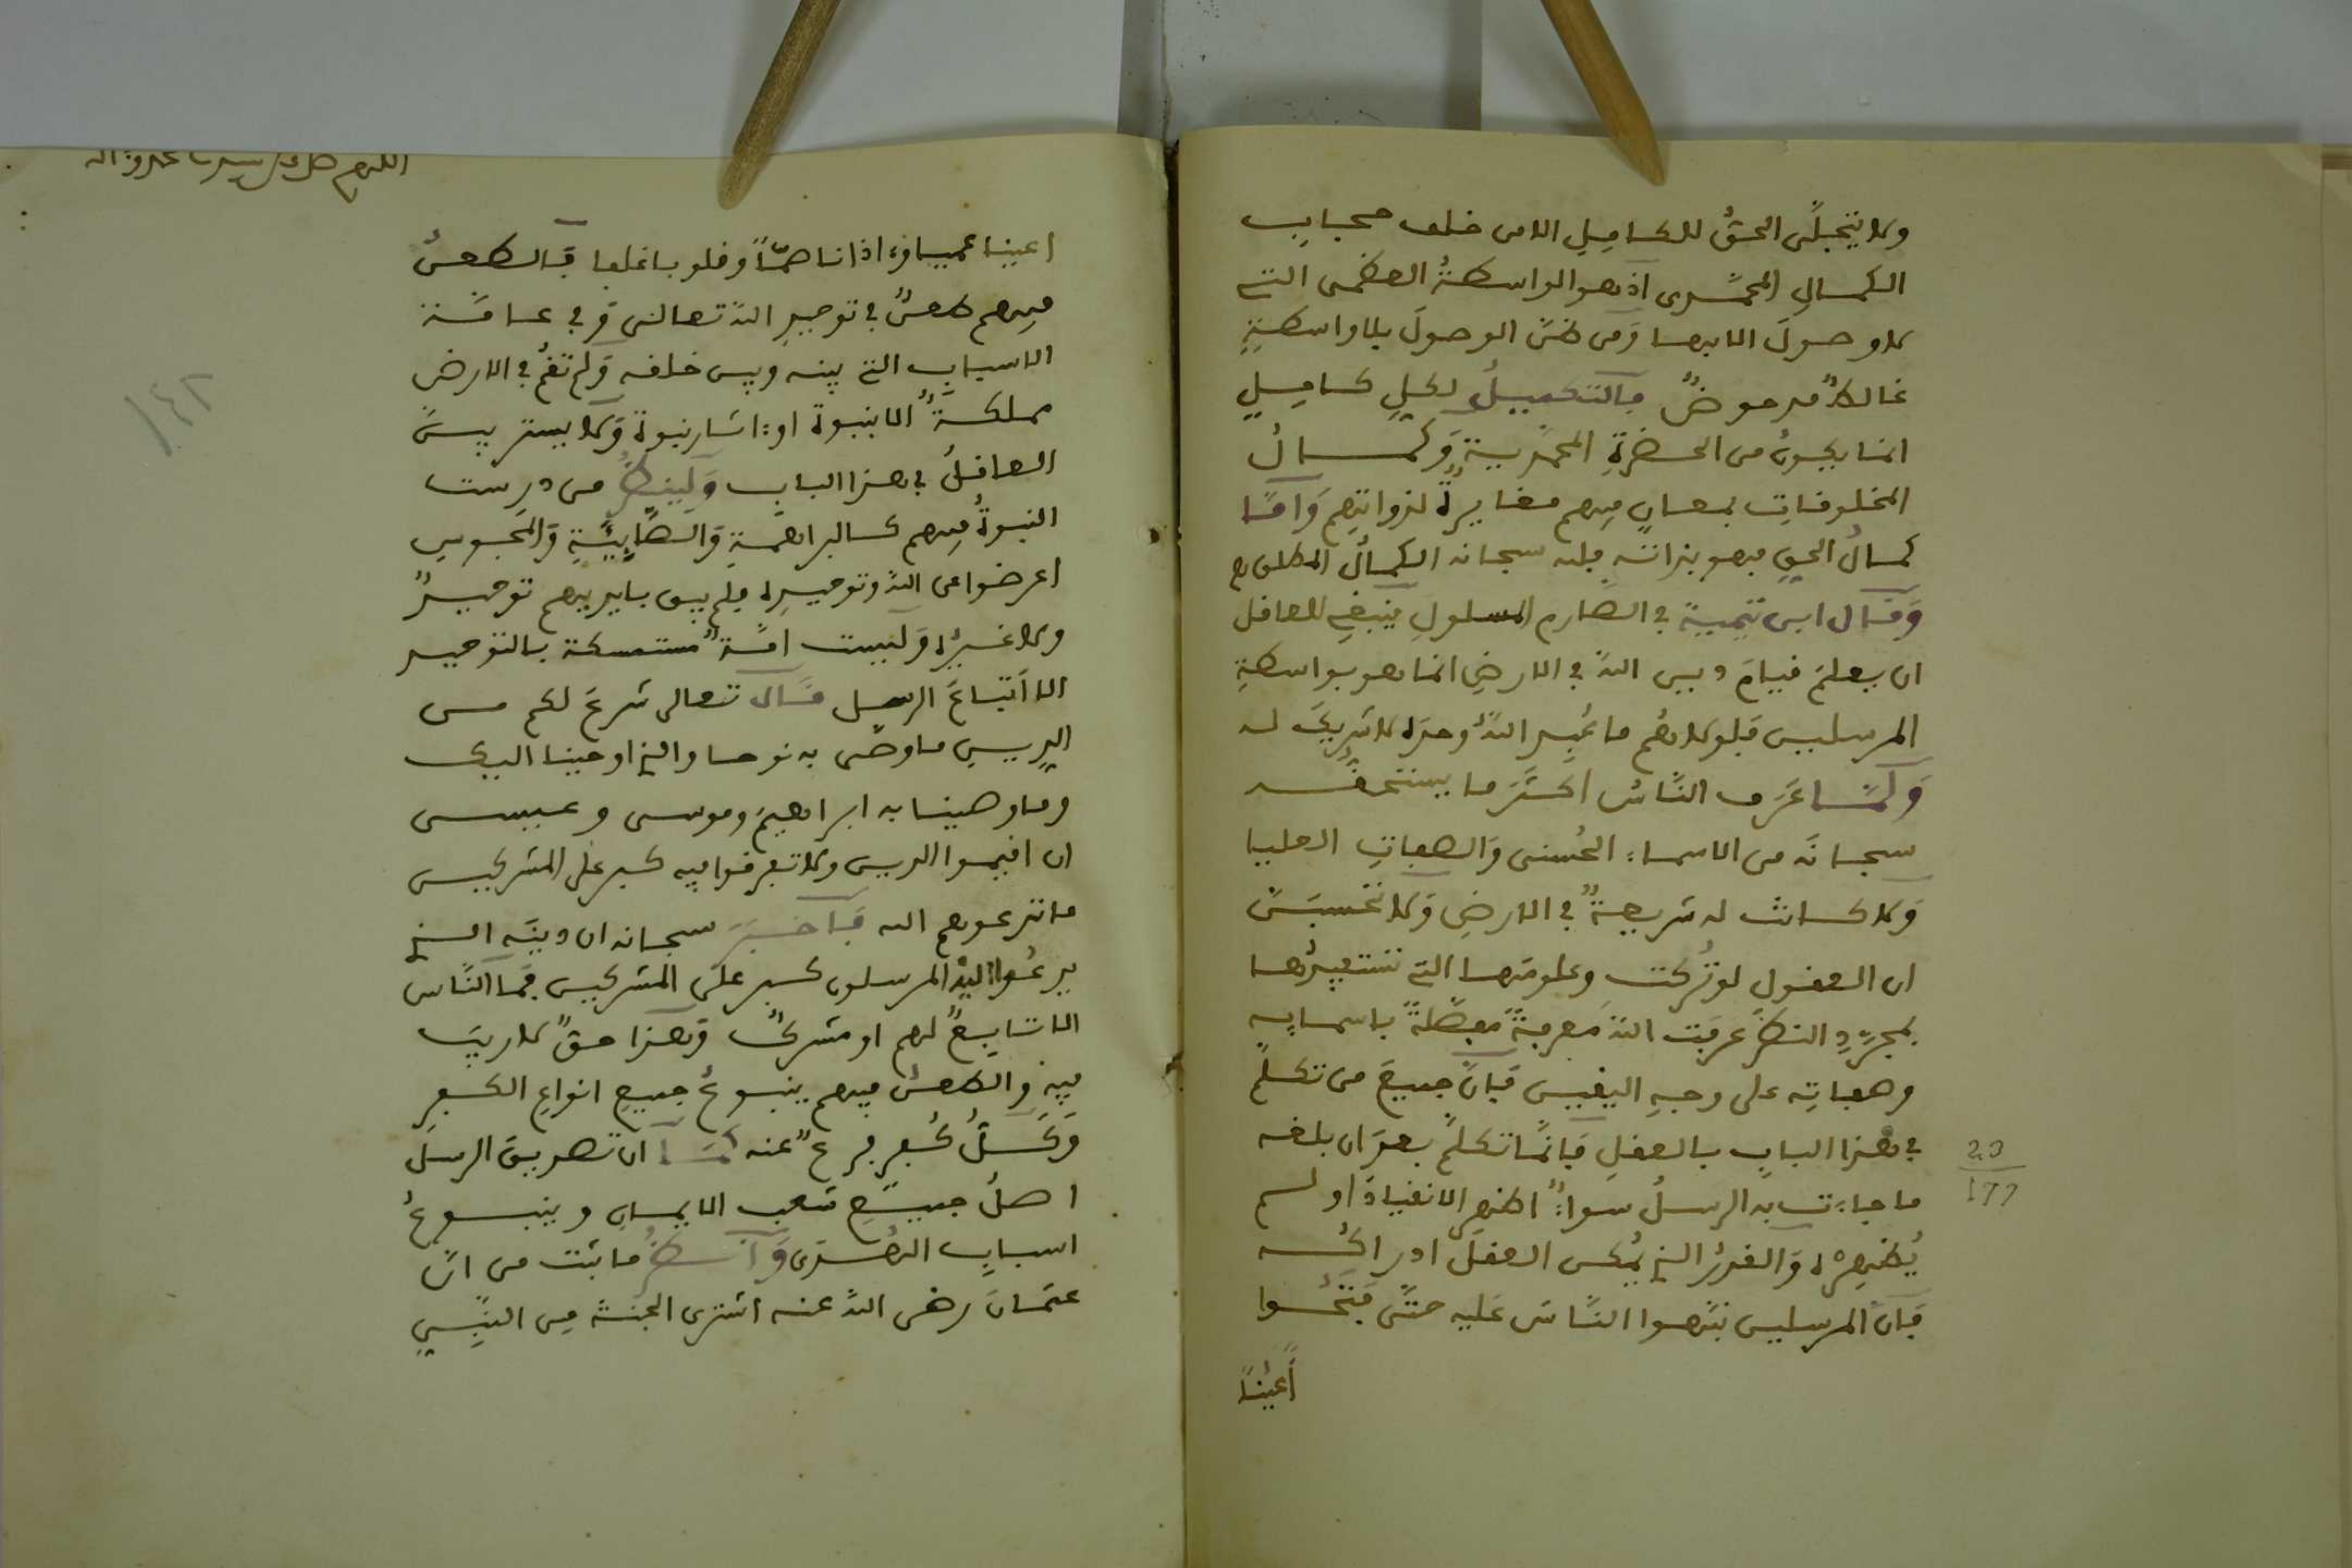 ولا يتجلّى الحقّ للكامِلِ الا من خلف حجاب
الكمالِ المحمّدى اذ هو الواسطةُ العظمى التے
لا وصولَ الا بها وَمن ظنّ الوصولَ بلا واسطةٍ
غالطٌ مدحوضٌ فالتكميلُ لكلِ كامِلٍ
انما يكونُ من الحضرةِ المحمّديةِ وَكمالُ
المخلوفاتِ بمعانٍ فيهم مغايرةٌ لذواتِهم وَامّا
كمالُ الحقِ فهو بذاتهِ فله سبحانه الكمالُ المطلق ه
وَقال ابن تيمية في الصارم المسلولِ ينبغے للعاقل
ان يعلمَ قيامَ دين اللهِ في الارضِ انما هو بواسطةِ
المرسلين فلولاهُم ما عُبد اللهُ وحدَه لا شريكَ له
وَلَمّا عَرَف النّاسُ اكثَرَ ما يستحقُّه
سبحانَه من الاسماء الحُسنى وَالصفاتِ العليا
وَلا كانتْ له شريعةٌ في الارضِ وَلا تَحسَبَنّ
ان العقولَ لو تُركت وعلومَها التے تستفيدُها
بمجرّدِ النظرِ عرَفت اللهَ معرفةً مفصّلةً باسمايه
وصفاتِه على وجهِ اليقين فَانّ جميعَ من تكلّم
في هذا البابِ بالعقلِ فَانّما تكلّم بعدَ ان بلغه
ما جاءت به الرسلُ سواءٌ اظهر الانقيادَ او لم
يُظهِرْه وَالقدرُ الذے يُمكن العقلَ ادراكُه
فَان المرسلين نبّهوا النّاسَ عَليه حتّى فَتَحُوا
أَعْيُنًا
اعينا عميا واذانا صمّاً وقلوبا غلفا فَالطعنُ
فيهم طعنٌ في توحيدِ اللهِ تعالى وَفي عامّة
الاسباب التے بينه وبين خلقه وَلم تقُم في الارض
مملكةٌ الا بنبوة او اثار نبوة وَلا يستريبنّ
العاقلُ في هذا الباب وَلينظُرْ من درست
النبوةُ فيهم كالبراهمةِ وَالصَّابِئَةِ وَالمَجوسِ
اعرضوا عن اللهِ وتوحيدِه فلم يبق بايديهم توحيدٌ
ولا غيرُه وَليست امّةٌ مستمسكة بالتوحيد
الا اَتباعَ الرسل قال تعالى شرعَ لكم من
الدين ما وصّى به نوحا والذے اوحينا اليك
وما وصينا به ابراهيمَ وموسى وعيسى
ان اقيموا الدين ولا تتفرقوا فيه كبر على المشركين
ما تدعوهم اليه فَاخبَرَ سبحانه ان دينَه الذے
يدعُوا اليهِ المرسلون كبر على المشركين فَما النّاس
الا تابِعٌ لهم او مشركٌ وَهذا حقٌ لا ريبَ
فيه وَالطعنُ فيهم ينبوعُ جميع انواعِ الكفرِ
وَكلُّ كُفرٍ فرعٌ عنه كَما ان تصديقَ الرسلَ
اصلُ جميعِ شعب الايمانِ وينبوعُ
اسبابِ الهُدى وَانظرُ ما ثبت من انّ
عثمانَ رضى الله عنه اشترى الجنةَ مِن النبِّيِ
29
177
142